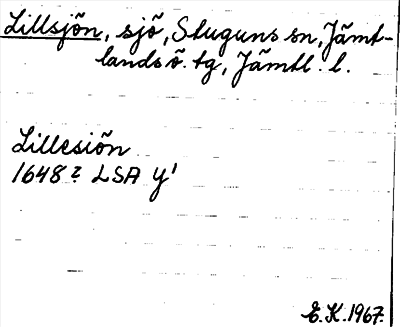 Lillsjön, sjö, Stuguns sn, Jämt-
lands ö. tg, Jämtl. l.
Lillesiön
1648 ? LSA Y¹
E.K. 1967.